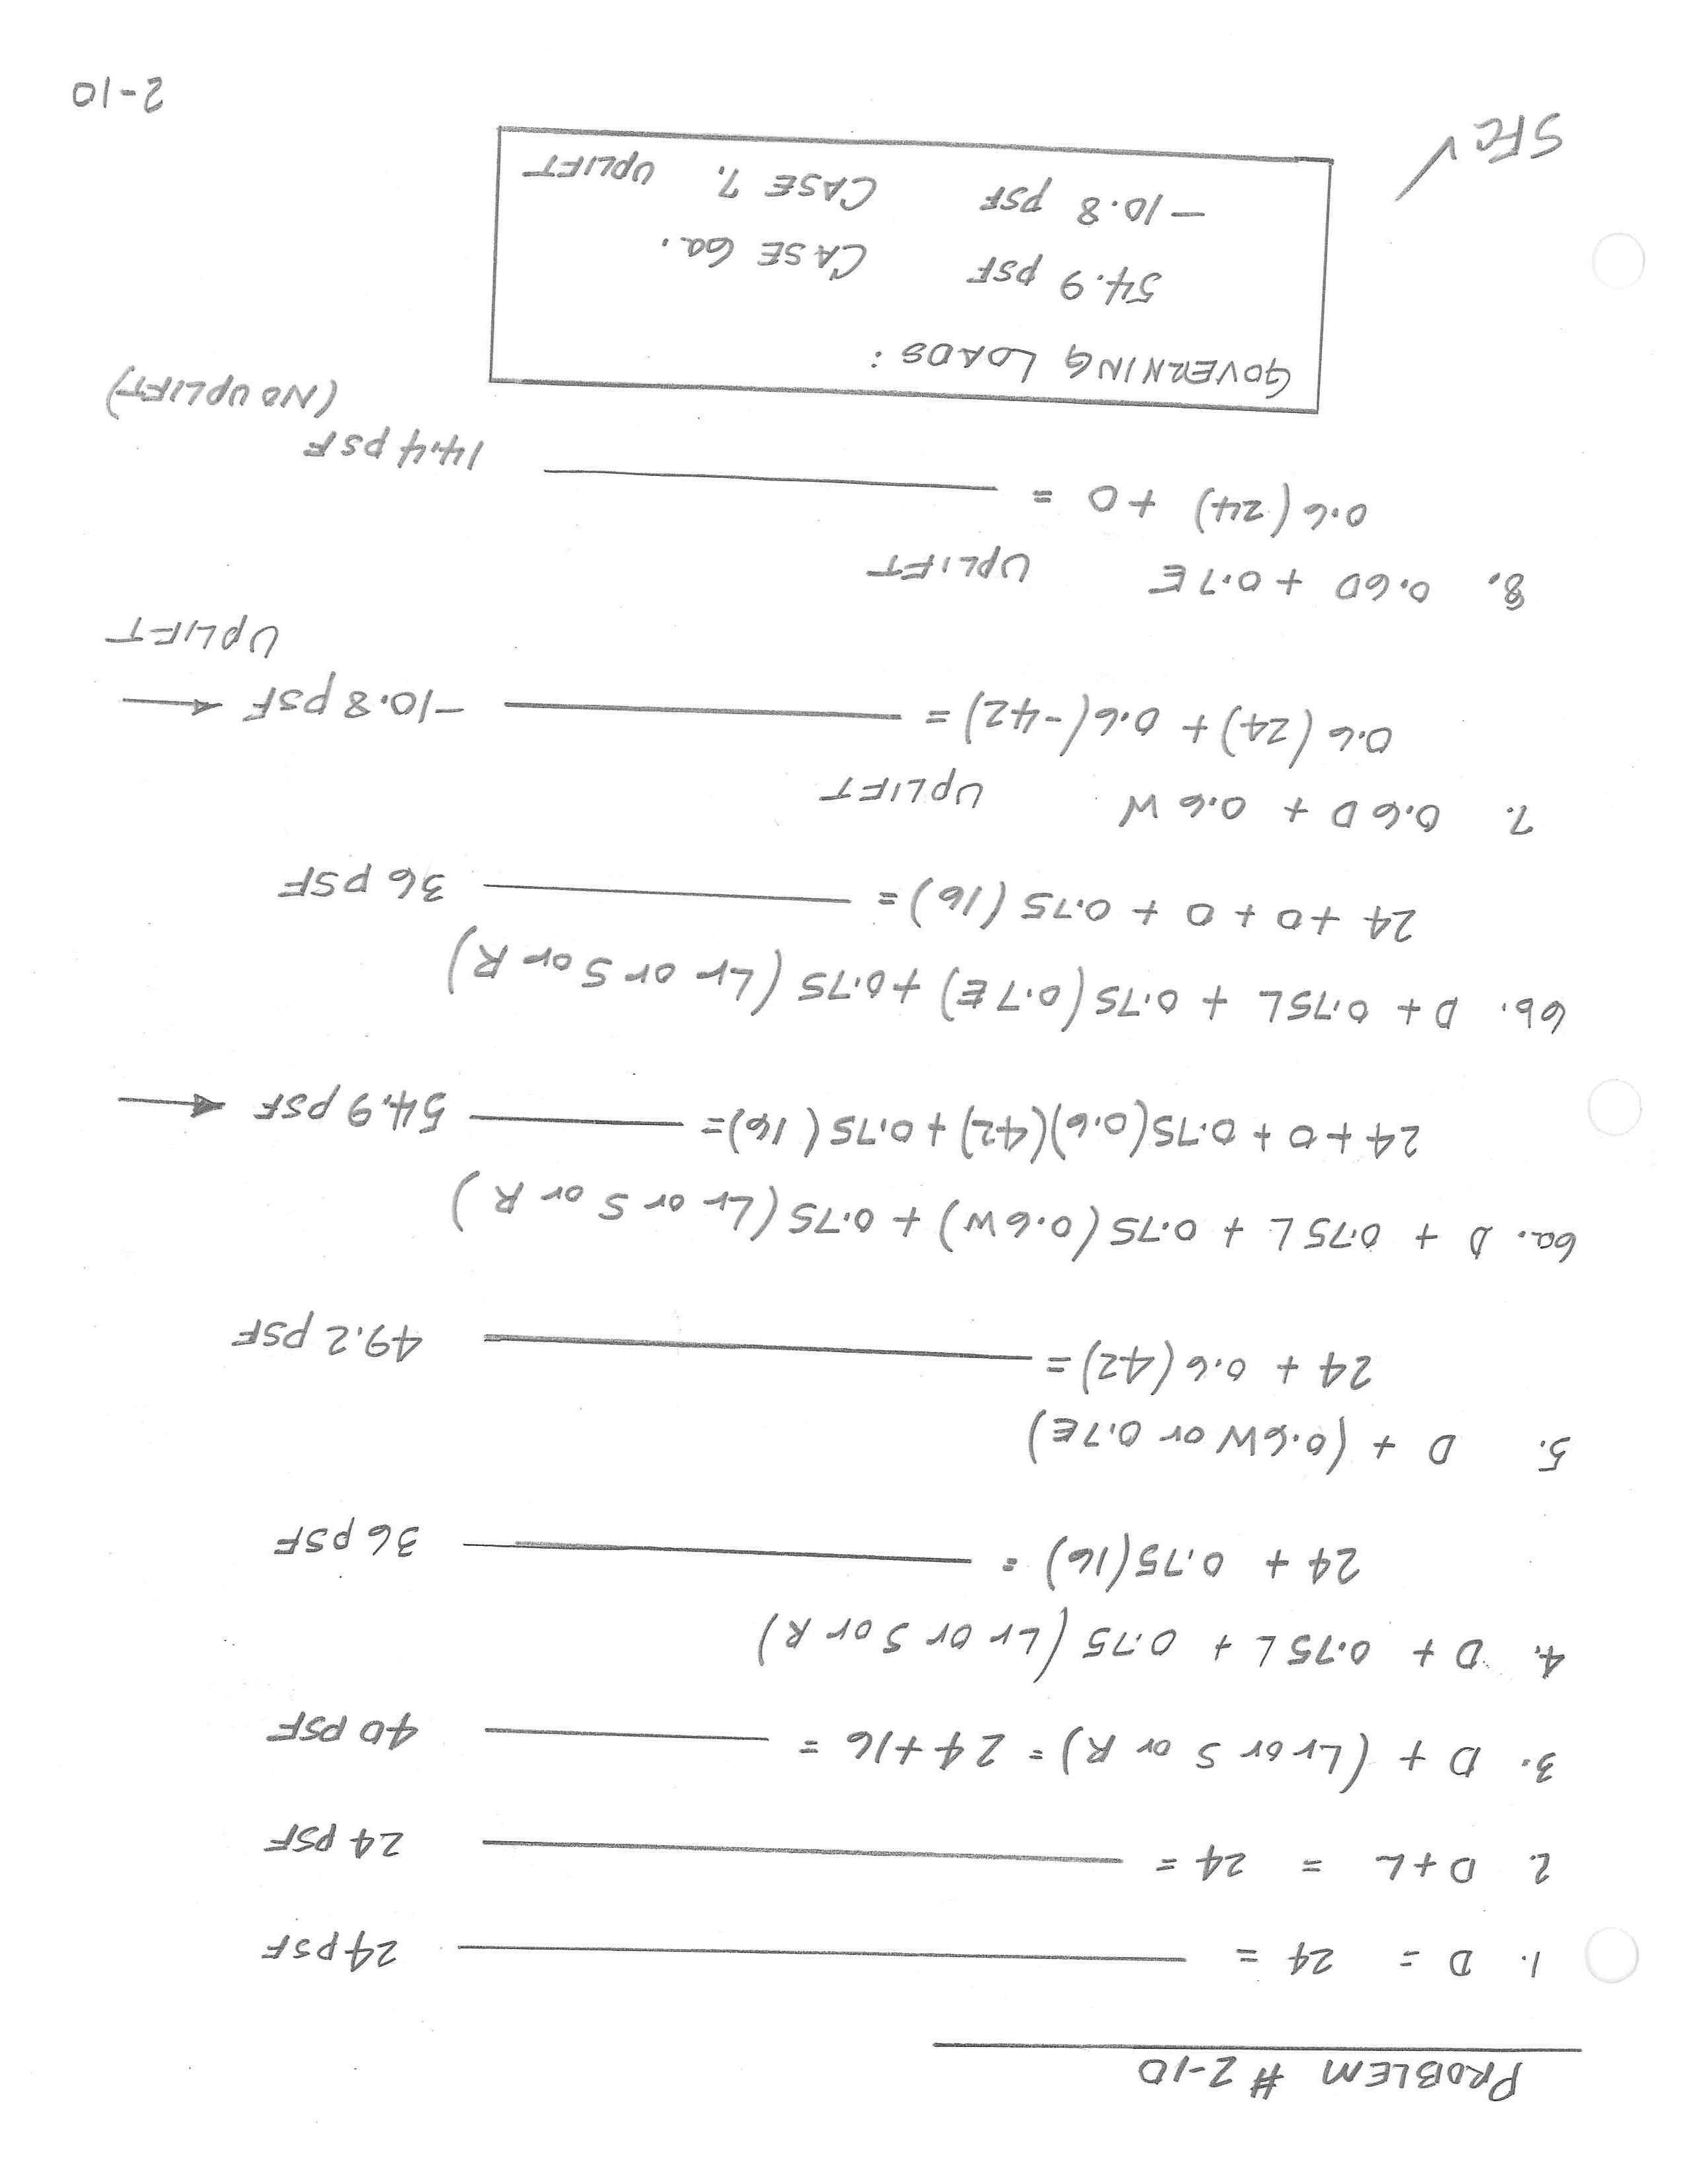 PROBLEM # 2-10
1. D = 24 = 24 PSF
2. D+L = 24 = 24 PSF
3. D + (Lr or S or R) = 24+16 = 40 PSF
4. D + 0.75L + 0.75 (Lr or S or R)
24 + 0.75(16) = 36 PSF
5. D + (0.6W or 0.7E)
24 + 0.6(42) = 49.2 PSF
6a. D + 0.75L + 0.75(0.6W) + 0.75(Lr or S or R)
24+0+0.75(0.6)(42)+0.75(16)= 54.9 PSF
6b. D + 0.75L + 0.75(0.7E) +0.75 (Lr or S or R)
24 +0+0+0.75(16)= 36 PSF
7. 0.6D + 0.6W UPLIFT
0.6(24)+0.6(-42)= -10.8 PSF
UPLIFT
8. 0.6D +0.7E UPLIFT
0.6(24) +0 = 14.4 PSF
(NO UPLIFT)
GOVERNING LOADS:
54.9 PSF CASE 6a.
-10.8 PSF CASE 7. UPLIFT
2-10